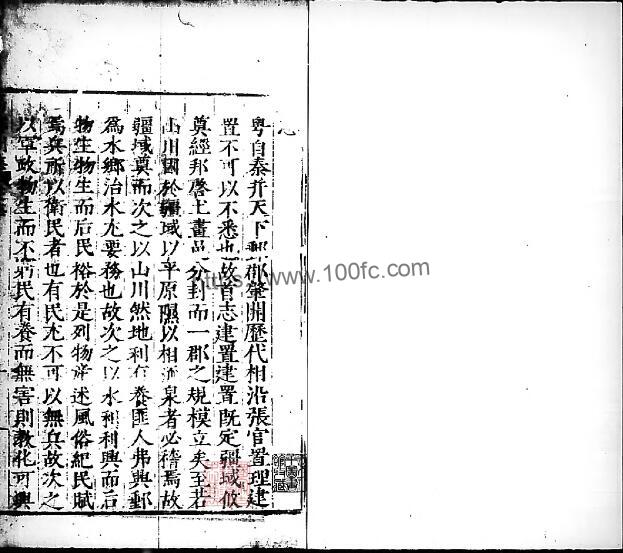 粵自秦并天下郡肇開歷代相沿張官置理建
置不可以不悉也故首志建置建置既定疆域攸
奠經邦啓土畫邑分封而一郡之規模立矣至若
山川國於疆域以平原隰以相泉者必稽焉故
疆域奠而次之以山川然地利有養匪人弗興鄞
為水鄉治水尤要務也故次之以水利利興而后
物生物生而后民俗於是列物產述風俗紀民賦
焉兵所以衛民者也有民尤不可以無兵故次之
以軍政物生而不窮民有養而無害則教化可興
www.100fc.com